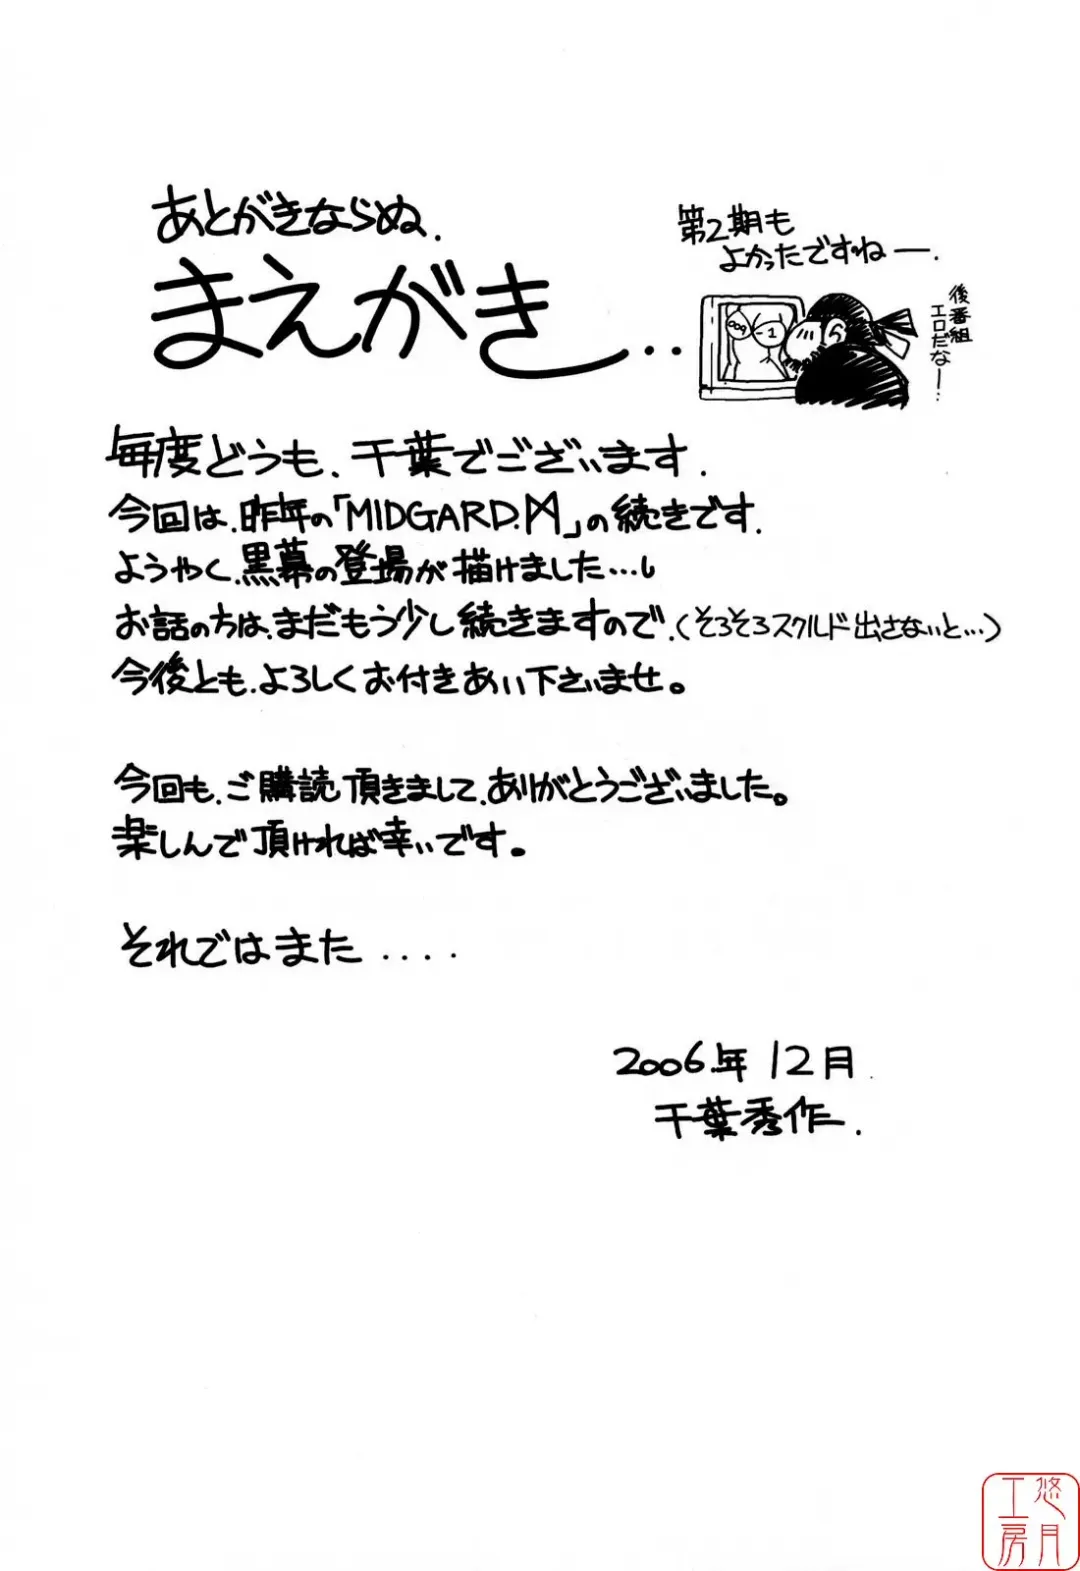 あとがきならぬ、
まえがき..
第2期も
よかったですねー.
後番組
エロだなー…
毎度どうも、千葉でございます.
今回は、昨年の「MIDGARD.ᛞ」の続きです.
ようやく、黒幕の登場が描けました…し
お話の方は、まだもう少し続きますので、(そろそろスクルド出さないと…)
今後とも、よろしくお付きあい下さいませ。
今回も、ご購読頂きまして、ありがとうございました。
楽しんで頂ければ幸いです。
それではまた....
2006.年 12月.
千葉秀作.
悠月
工房